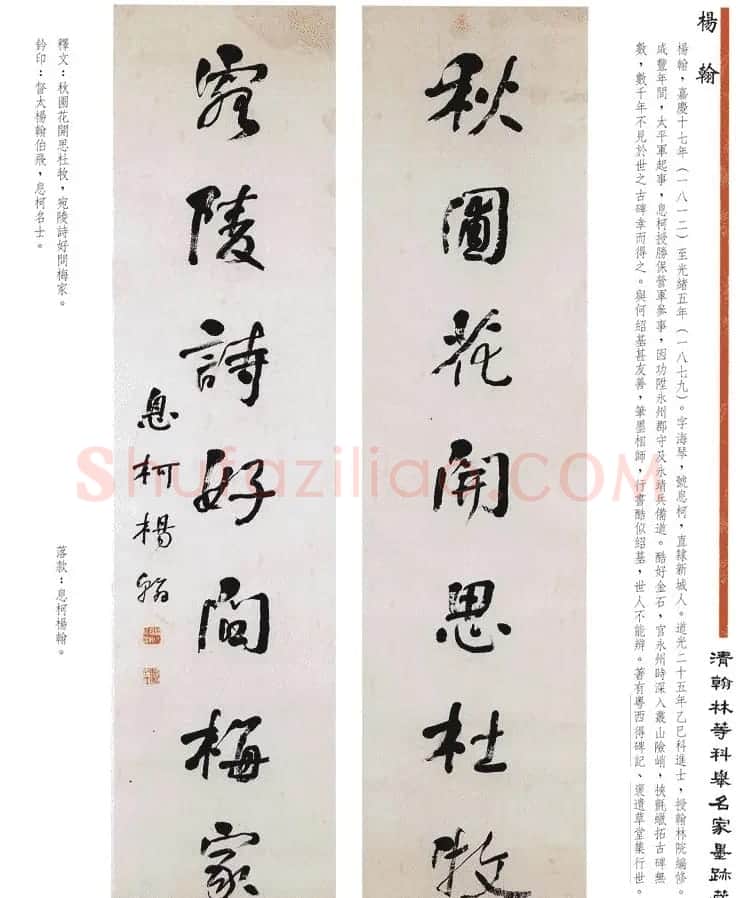 楊翰
楊翰，嘉慶十七年（一八一二）至光緒五年（一八七九）。字海琴，號息柯，直隸新城人。道光二十五年乙巳科進士，授翰林院編修。
咸豐年間，太平軍起事，息柯授勝保營軍參事，因功陞永州郡守及永靖兵備道。酷好金石，官永州時深入叢山險峭，挾氈蠟拓古碑無
數，數千年不見於世之古碑幸而得之。與何紹基甚友善，筆墨相師，行書酷似紹基，世人不能辨。著有粵西得碑記、褒遺草堂集行世。
清翰林等科舉名家墨跡
秋圃花開思杜牧
宛陵詩好問梅家
息柯楊翰
釋文：秋圃花開思杜牧，宛陵詩好問梅家。
落款：息柯楊翰。
鈐印：督太楊翰伯飛，息柯名士。
Shufaziliao.COM